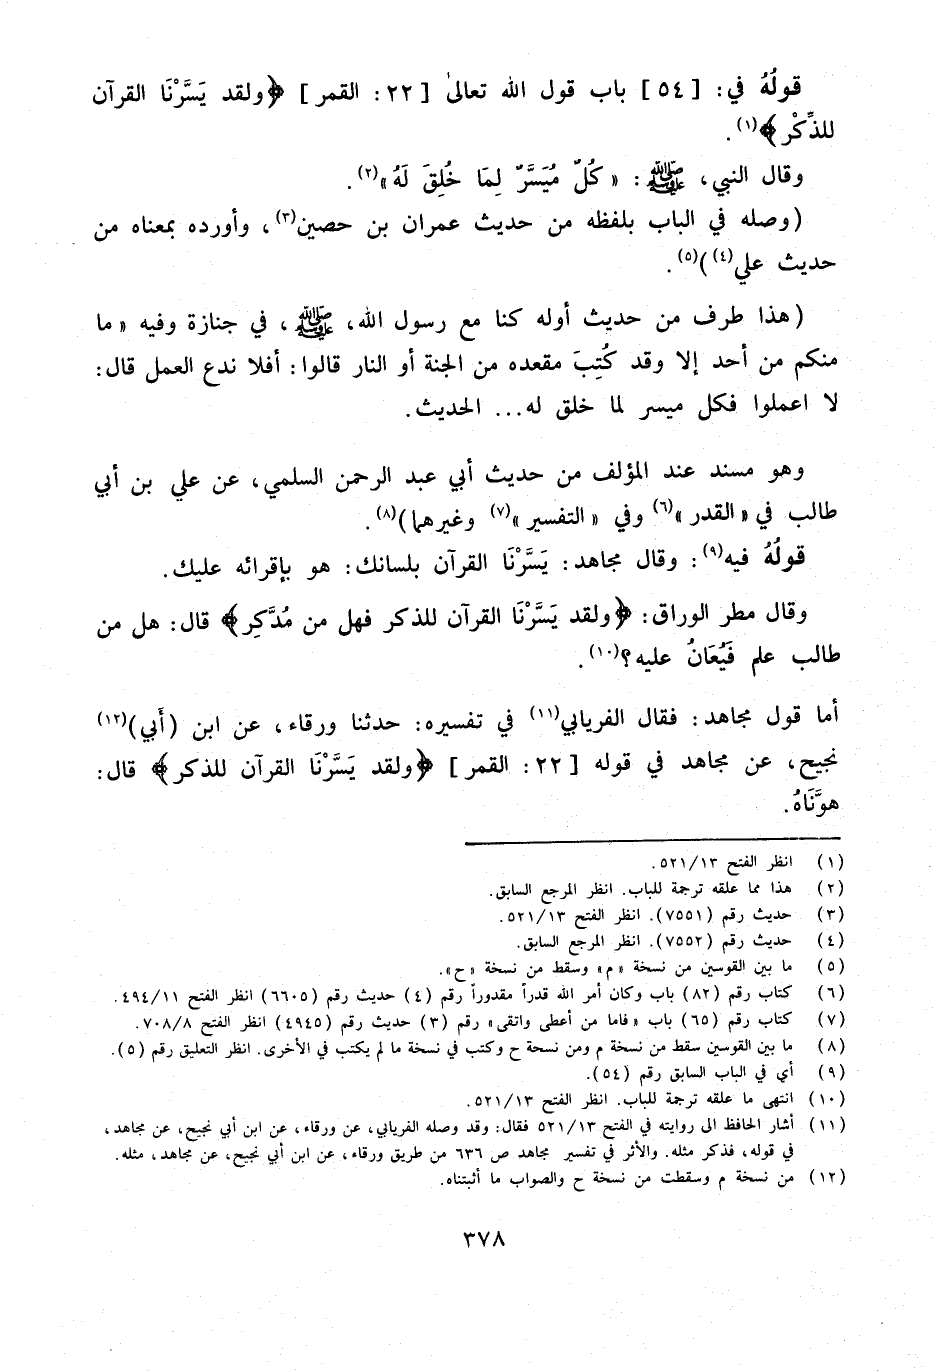 قولُهُ في: [ ٥٤ ] باب قول الله تعالىٰ [ ٢٢: القمر ] ﴿ولقد يَسَّرْنَا القرآن
للذِّكْر﴾(١).
وقال النبي، ﷺ: «كُلٌ مُيَسَّرٌ لِمَا خُلِقَ لَهُ»(٢).
(وصله في الباب بلفظه من حديث عمران بن حصين(٣)، وأورده بمعناه من
حديث علي(٤))(٥).
(هذا طرف من حديث أوله كنا مع رسول الله، ﷺ، في جنازة وفيه «ما
منكم من أحد إلا وقد كُتِبَ مقعده من الجنة أو النار قالوا: أفلا ندع العمل قال:
لا اعملوا فكل ميسر لما خلق له... الحديث.
وهو مسند عند المؤلف من حديث أبي عبد الرحمن السلمي، عن علي بن أبي
طالب في «القدر»(٦) وفي «التفسير»(٧) وغيرهما)(٨).
قولُهُ فيه(٩): وقال مجاهد: يَسَّرْنَا القرآن بلسانك: هو بإقرائه عليك.
وقال مطر الوراق: ﴿ولقد يَسَّرْنَا القرآن للذكر فهل من مُدَّكِر﴾ قال: هل من
طالب علم فَيُعَانُ عليه؟(١٠).
أما قول مجاهد: فقال الفريابي(١١) في تفسيره: حدثنا ورقاء، عن ابن (أَبي)(١٢)
نجيح، عن مجاهد في قوله [ ٢٢: القمر ] ﴿ولقد يَسَّرْنَا القرآن للذكر﴾ قال:
هوَّنَاهُ.
(١) انظر الفتح ٥٢١/١٣.
(٢) هذا مما علقه ترجمة للباب. انظر المرجع السابق.
(٣) حديث رقم (٧٥٥١). انظر الفتح ٥٢١/١٣.
(٤) حديث رقم (٧٥٥٢). انظر المرجع السابق.
(٥) ما بين القوسين من نسخة «م» وسقط من نسخة «ح».
(٦) كتاب رقم (٨٢) باب وكان أمر الله قدراً مقدوراً رقم (٤) حديث رقم (٦٦٠٥) انظر الفتح ٤٩٤/١١.
(٧) كتاب رقم (٦٥) باب «فاما من أعطى واتقى» رقم (٣) حديث رقم (٤٩٤٥) انظر الفتح ٧٠٨/٨.
(٨) ما بين القوسين سقط من نسخة م ومن نسحة ح وكتب في نسخة ما لم يكتب في الأخرى. انظر التعليق رقم (٥).
(٩) أي في الباب السابق رقم (٥٤).
(١٠) انتهى ما علقه ترجمة للباب. انظر الفتح ٥٢١/١٣.
(١١) أشار الحافظ الى روايته في الفتح ٥٢١/١٣ فقال: وقد وصله الفريابي، عن ورقاء، عن ابن أبي نجيح، عن مجاهد،
في قوله، فذكر مثله. والأثر في تفسير مجاهد ص ٦٣٦ من طريق ورقاء، عن ابن أبي نجيح، عن مجاهد، مثله.
(١٢) من نسخة م وسقطت من نسخة ح والصواب ما أثبتناه.
٣٧٨